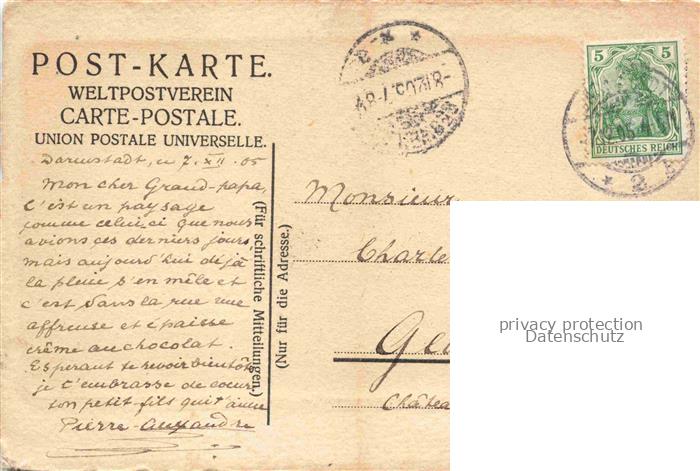 POST-KARTE.
WELTPOSTVEREIN
CARTE-POSTALE.
UNION POSTALE UNIVERSELLE.
Darmstadt, 7. XII. 05
Mon cher Grand-papa,
C'est un paysage
comme celui-ci que nous
avions ces derniers jours,
mais aujourd'hui déjà
la pluie s'en mêle et
c'est dans la rue une
affreuse et épaisse
crême au chocolat.
Esperant te revoir bientôt
je t'embrasse de coeur
ton petit-fils qui t'aime
Pierre-Alexandre
(Für schriftliche Mitteilungen.)
(Nur für die Adresse.)
Monsieur
Charle
Ge
Châtea
5 5
DEUTSCHES REICH
privacy protection
Datenschutz